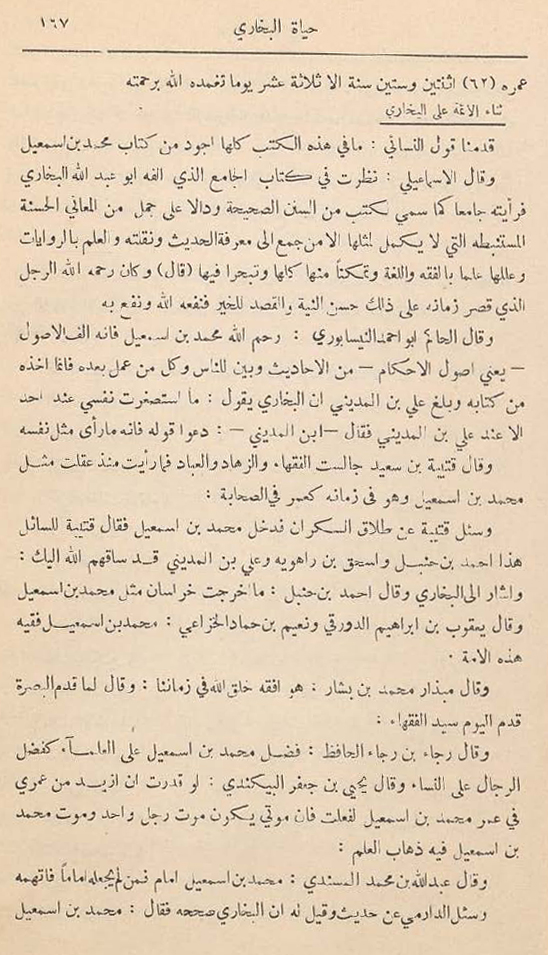 حياة البخاري ١٦٧
عمره (٦٢) اثنتين وستين سنة الا ثلاثة عشر يوما تغمده الله برحمته
ثناء الائمة على البخاري
قدمنا قول النسائي : ما في هذه الكتب كلها اجود من كتاب محمد بن اسمعيل
وقال الاسماعيلي : نظرت في كتاب الجامع الذي الفه ابو عبد الله البخاري
فرأيته جامعا كما سمي لكتب من السنن الصحيحة ودالا على جمل من المعاني الحسنة
المستنبطه التي لا يكمل لمثلها الا من جمع الى معرفة الحديث ونقلته والعلم بالروايات
وعللها علما بالفقه واللغة وتمكناً منها كلها وتبحرا فيها (قال) وكان رحمه الله الرجل
الذي قصر زمانه على ذلك حسن النية والقصد للخير فنفعه الله ونفع به
وقال الحاكم ابو احمد النيسابوري : رحم الله محمد بن اسمعيل فانه الف الاصول
— يعني اصول الاحكام — من الاحاديث وبين للناس وكل من عمل بعده فانما اخذه
من كتابه وبلغ علي بن المديني ان البخاري يقول : ما استصغرت نفسي عند احد
الا عند علي بن المديني فقال — ابن المديني — : دعوا قوله فانه ما رأى مثل نفسه
وقال قتيبة بن سعيد جالست الفقهاء والزهاد والعباد فما رأيت منذ عقلت مثل
محمد بن اسمعيل وهو في زمانه كعمر في الصحابة :
وسئل قتيبة عن طلاق السكران فدخل محمد بن اسمعيل فقال قتيبة للسائل
هذا احمد بن حنبل واسحق بن راهويه وعلي بن المديني قد ساقهم الله اليك :
واشار الى البخاري وقال احمد بن حنبل : ما اخرجت خراسان مثل محمد بن اسمعيل
وقال يعقوب بن ابراهيم الدورقي ونعيم بن حماد الخزاعي : محمد بن اسمعيل فقيه
هذه الامة .
وقال محمد بن بشار : هو افقه خلق الله في زماننا : وقال لما قدم البصرة
قدم اليوم سيد الفقهاء :
وقال رجاء بن رجاء الحافظ : فضل محمد بن اسمعيل على العلماء كفضل
الرجال على النساء وقال يحيى بن جعفر البيكندي : لو قدرت ان ازيد من عمري
في عمر محمد بن اسمعيل لفعلت فان موتي يكون موت رجل واحد وموت محمد
بن اسمعيل فيه ذهاب العلم :
وقال عبد الله بن محمد المسندي : محمد بن اسمعيل امام فمن لم يجعله اماماً فاتهمه
وسئل الدارمي عن حديث وقيل له ان البخاري صححه فقال : محمد بن اسمعيل